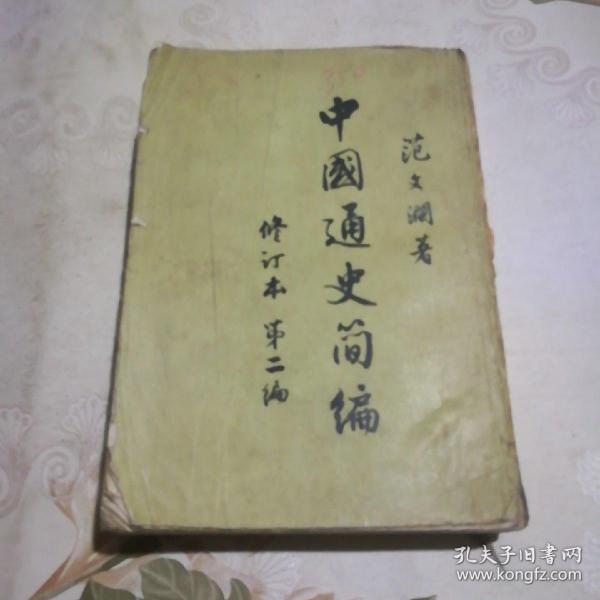 350
范文澜著
中國通史简编
修订本 第二编
孔夫子旧书网
www.kongfz.com